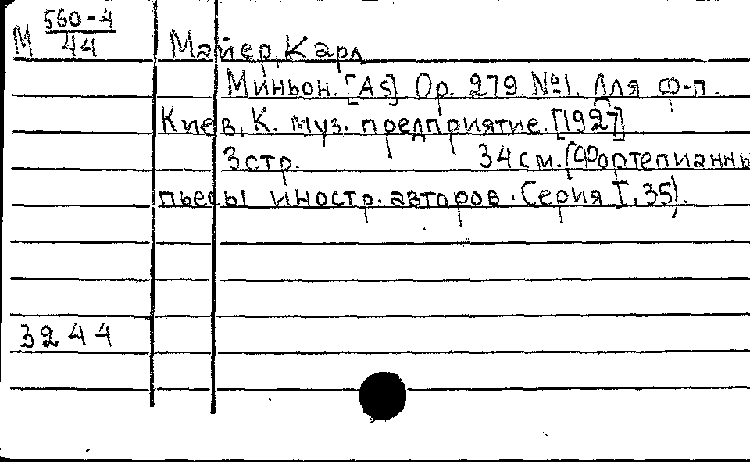 М 560-4/44 Майер, Карл
Миньон. [As] Op. 279 №1. Для ф-п.
Киев, К. муз. предприятие. [1927]
3 стр. 34 см. (Фортепианны
пьесы иностр. авторов. Серия I, 35).
3244